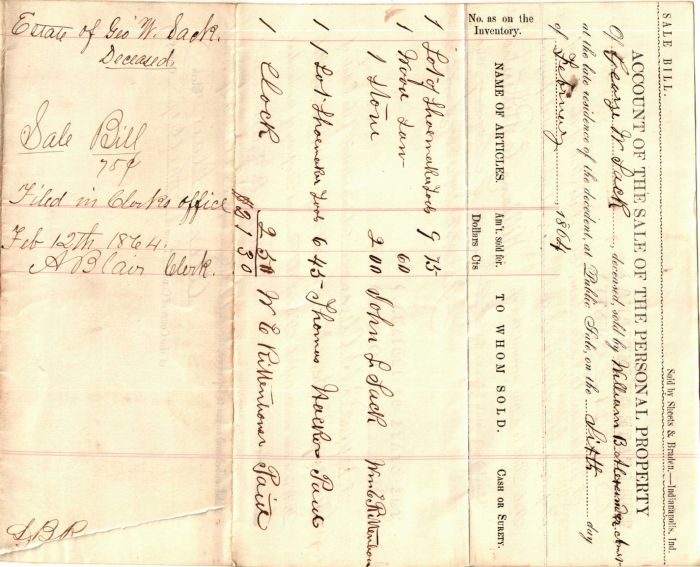 SALE BILL.
Sold by Sheets & Braden.—Indianapolis, Ind.
ACCOUNT OF THE SALE OF THE PERSONAL PROPERTY
Of George W. Sack, deceased, sold by William B. Alexander
at the late residence of the decedent, at Public Sale, on the Sixth day
of February, 1864
No. as on the Inventory. NAME OF ARTICLES. Am't. sold for. Dollars Cts TO WHOM SOLD. CASH OR SURETY.
1 Lot of Shoemaker tools 9 75
1 Wood Saw 60
1 Stove 2 00 John L Sack Wm E Rittenhouse
1 1 Lot Shoemaker Tools 6 45 Thomas Paid
1 Clock 2 50 W E Rittenhouse Paid
$21 30
Estate of Geo W. Sack.
Deceased
Sale Bill
75¢
Filed in Clerks office
Feb 12th 1864.
A Blair Clerk.
S.B.R